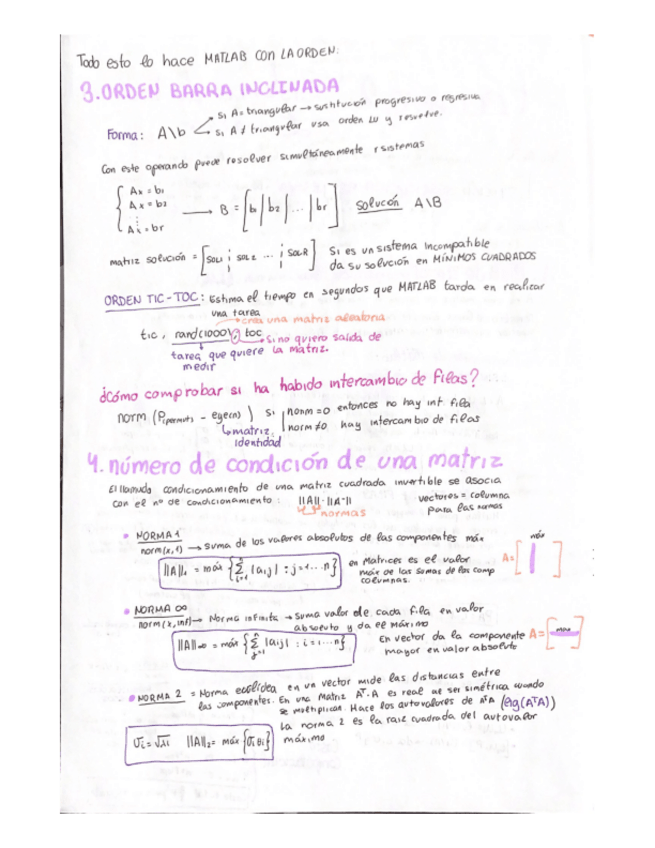 Todo esto lo hace MATLAB CON LA ORDEN:
3. ORDEN BARRA INCLINADA
Forma: A\b
si A = triangular → sustitución progresiva o regresiva
si A ≠ triangular usa orden LU y resuelve.
Con este operando puede resolver simultáneamente r sistemas
Ax = b1
Ax = b2
⋮
Ai = br
→ B = [b1 | b2 | ... | br] solucón A\B
matriz solución = [SOL1 ¦ SOL2 ... ¦ SOLR]
Si es un sistema incompatible
da su solución en MÍNIMOS CUADRADOS
ORDEN TIC-TOC: Estima el tiempo en segundos que MATLAB tarda en realizar
una tarea
crea una matriz aleatoria
tic, rand(1000); toc
si no quiero salida de
la matriz.
tarea que quiere
medir
¿Cómo comprobar si ha habido intercambio de filas?
norm (Ppermuts - eye(n)) si
norm = 0 entonces no hay int. fila
norm ≠ 0 hay intercambio de filas
matriz
identidad
4. número de condición de una matriz
El llamado condicionamiento de una matriz cuadrada invertible se asocia
con el nº de condicionamiento: ||A||·||A⁻¹||
normas
vectores = columna
para las normas
• NORMA 1
norm(x,1) → suma de los valores absolutos de las componentes máx
||A||₁ = máx {∑ i=1 n |aij| : j=1...n}
en matrices es el valor
máx de las sumas de las comp
columnas.
A = [ ]
máx
• NORMA ∞
norm(x,inf) → Norma infinita → suma valor de cada fila en valor
absoluto y da el máximo
||A||∞ = máx {∑ j=1 n |aij| : i=1...n}
En vector da la componente
mayor en valor absoluto
A = [ máx ]
• NORMA 2 = Norma ecolídea en un vector mide las distancias entre
las componentes. En una matriz AᵀA es real al ser simétrica cuando
se multiplican. Hace los autovalores de AᵀA (eig(AᵀA))
La norma 2 es la raíz cuadrada del autovalor
máximo
σi = √λi ||A||₂ = máx {σi}